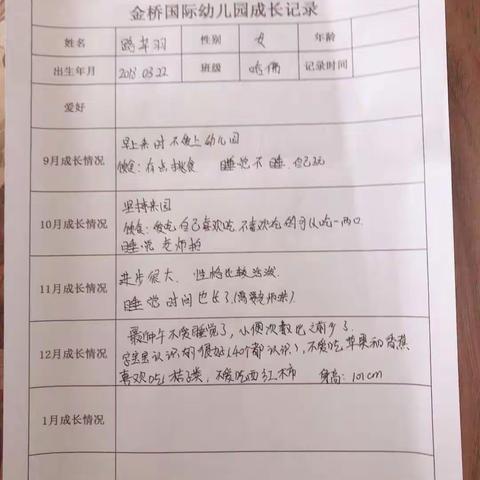 金桥国际幼儿园成长记录
姓名 路芊羽 性别 女 年龄
出生年月 2018 03.22 班级 哈佛 记录时间
爱好
9月成长情况
早上来时不爱上幼儿园
饮食:有点挑食 睡觉不睡.自己玩
10月成长情况
坚持来园
饮食:爱吃自己喜欢吃,不喜欢吃的可以吃一两口
睡觉老师拍
11月成长情况
进步很大.性格比较活泼
睡觉时间也长了
12月成长情况
最近中午不爱睡觉了,大便次数比之前少了
字宝宝认识的很好(40个都认识),不爱吃苹果和香蕉
喜欢吃桔子类,不爱吃西红柿 身高:101cm
1月成长情况